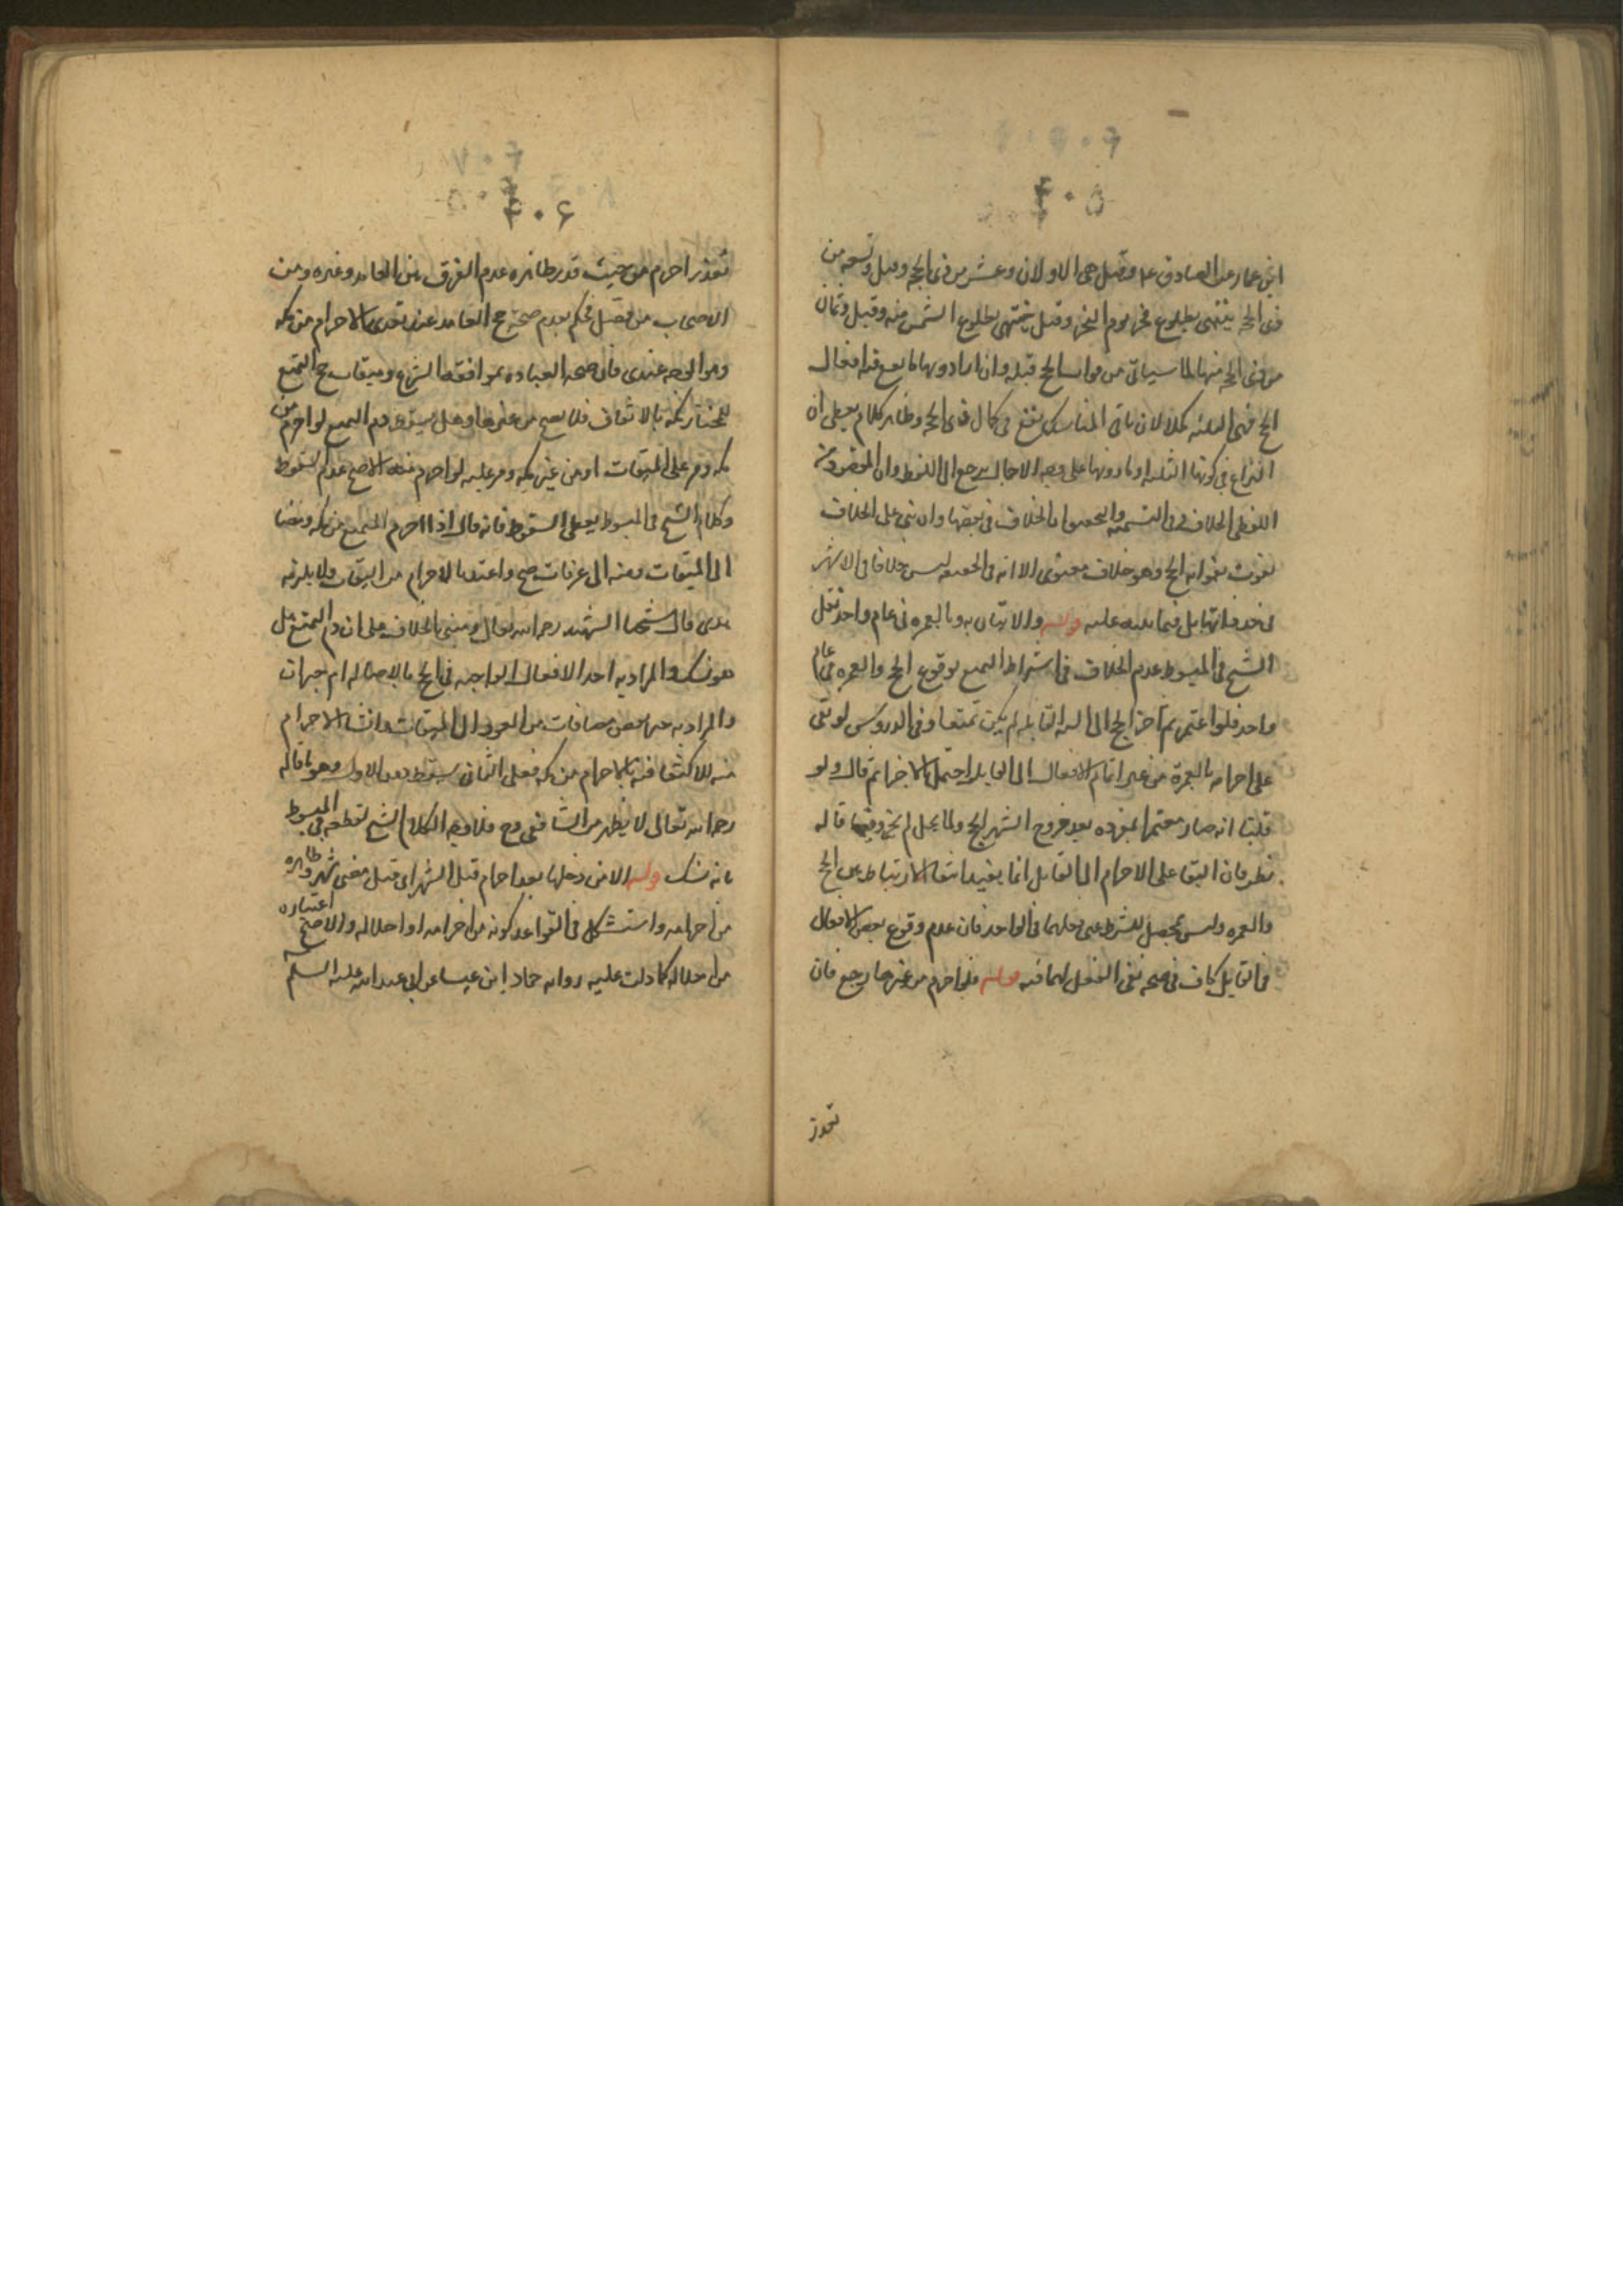 ۴۰۵
ابن عمار عن الصادق علیه وقیل هی الاولان وعشر من ذی الحجه وقیل وتسعه من
ذی الحجه ینتهی بطلوع فجر یوم النحر وقیل ینتهی بطلوع الشمس منه وقیل وثمان
من ذی الحجه منها لما سیاتی من فوات الحج قبله وان ارادوا بها ما یقع فیه افعال
الحج فهی الثلثه کملا لان باقی المناسک یقع فی کمال ذی الحجه وظاهر کلام یعطی ان
النزاع فی کونها الثلثه او ما دونها علی وجه الاجمال یرجع الی اللفظ وان المقصود من
اللفظی الخلاف فی التسمیه والخلاف فی بعضها وان بنی علی الخلاف
تفوت بفواته الحج وهو خلاف معنوی الا انه فی الحقیقه لیس خلافا فی الاشهر
بل فیما علیه قوله والاتیان به وبالعمره فی عام واحد نقل
الشیخ فی المبسوط عدم الخلاف فی اشتراط التمتع بوقوع الحج والعمره فی عام
واحد فلو اعتمر ثم اخر الحج الی السنه القابله لم یکن تمتعا وفی الدروس لو بقی
علی احرامه بالعمرة من غیر اتمام الافعال الی القابل احتمل الاجزا ثم قال ولو
قلنا انه صار معتمرا بمفرده بعد خروج اشهر الحج ولما یحل لم یجز وفیما قاله
نظر فان البقا علی الاحرام الی القابل انما یفید ابقا الارتباط بین الحج
والعمره ولیس یحصل للشرط اعنی فعلهما فی الواحد فان عدم وقوع بعض الافعال
فی القابل کاف فی صحه نفی الفعل لهما فیه قوله فلو احرم من غیرها رجع فان
تعذر
۴۰۶
تعذر احرم من حیث قدر ظاهره عدم الفرق بین العامد وغیره ومن
الاصحاب من فصل فحکم بعدم صحة حج العامد عند تعدی الاحرام من مکه
وهو الوجه عندی فان صحه العباده بموافقه الشرع ومیقات حج التمتع
للمختار مکه بالاتفاق فلا یصح من غیرها وهل یسقط دم التمتع لو احرم من
مکه ومر علی المیقات او من غیر مکه ومر علیه لو احرم منه الاصح عدم السقوط
وکلام الشیخ فی المبسوط یعطی السقوط فانه قال اذا احرم المتمتع من مکه ومضا
الی المیقات ومنه الی عرفات صح واعتد بالاحرام من المیقات ولا یلزمه
دم قال شیخنا الشهید رحمه الله تعالی ویبنی الخلاف علی ان دم التمتع هل
هو نسک والمراد به احد الافعال الواجبه فی الحج بالاصاله ام جبران
والمراد به جبر بعض مصافات من العود الی المیقات وانشا الاحرام
منه للاکتفا فیه بالاحرام من مکه فعلی الثانی یسقط دون الاول وهو ما قاله
رحمه الله تعالی لا یظهر من الشافعی وح فلا وجه لکلام الشیخ لقطعه فی المبسوط
بانه نسک قوله الا من دخلها بعد احرام قبل الشهر ای قبل مضی شهر وظاهره
من احرامه واستشکل فی القواعد کونه من احرامه او احلاله والاصح اعتباره
من احلاله کما دلت علیه روایه حماد ابن عیسا عن ابی عبد الله علیه السلم